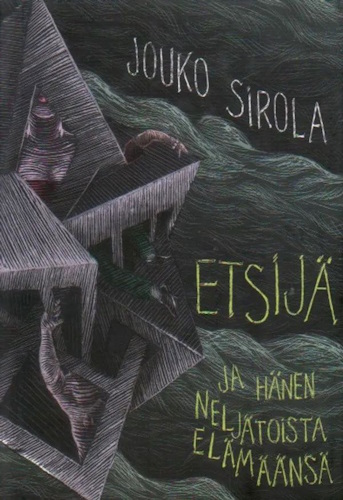 JOUKO SIROLA
ETSIJÄ
JA HÄNEN
NELJÄTOISTA
ELÄMÄÄNSÄ